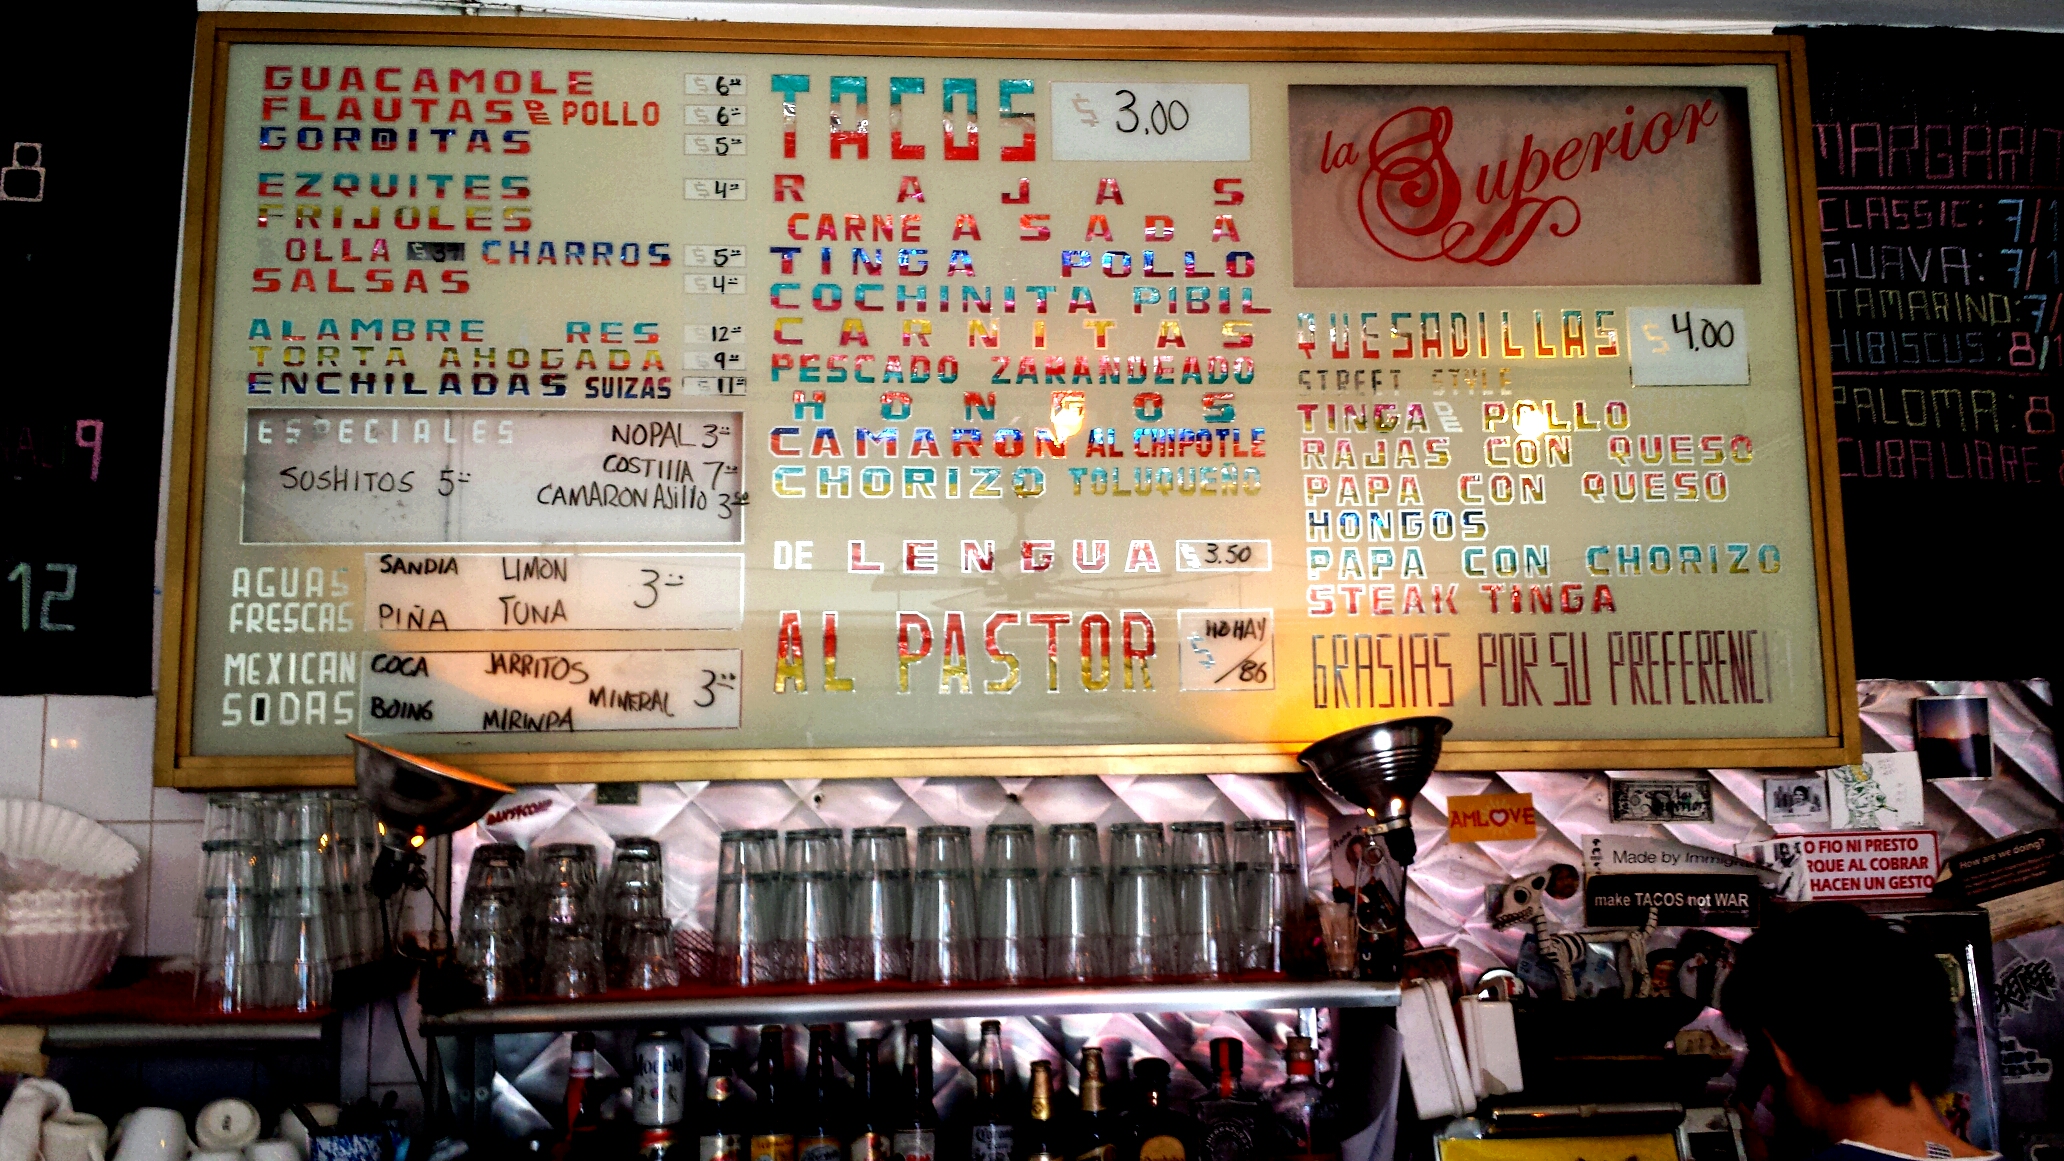 GUACAMOLE $6
FLAUTAS DE POLLO $6
GORDITAS $5
EZQUITES $4
FRIJOLES
OLLA CHARROS $5
SALSAS $4
ALAMBRE RES 12
TORTA AHOGADA 9
ENCHILADAS SUIZAS $11
ESPECIALES
SOSHITOS 5
NOPAL 3
COSTILLA 7
CAMARON AJILLO 3.50
AGUAS FRESCAS
SANDIA LIMON 3
PIÑA TUNA
MEXICAN SODAS
COCA JARRITOS
MINERAL 3
BOING MIRINDA
TACOS $3.00
RAJAS
CARNE ASADA
TINGA POLLO
COCHINITA PIBIL
CARNITAS
PESCADO ZARANDEADO
HONGOS
CAMARON AL CHIPOTLE
CHORIZO TOLUQUEÑO
DE LENGUA $3.50
AL PASTOR NO HAY /86
la Superior
QUESADILLAS $4.00
STREET STYLE
TINGA DE POLLO
RAJAS CON QUESO
PAPA CON QUESO
HONGOS
PAPA CON CHORIZO
STEAK TINGA
GRASIAS POR SU PREFERENCI
8
9
12
MARGARI
CLASSIC: 7/1
GUAVA: 7/1
TAMARIND: 7/
HIBISCUS: 8/
PALOMA: 8
CUBA LIBRE
AMLOVE
Made by Immig
make TACOS not WAR
O FIO NI PRESTO
RQUE AL COBRAR
HACEN UN GESTO
How are we doing?
Modelo